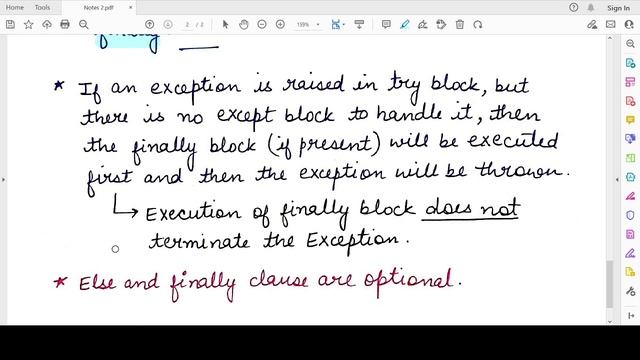 Home Tools Notes 2.pdf × Sign In
2 / 2 159%
finally
* If an exception is raised in try block, but
there is no except block to handle it, then
the finally block (if present) will be executed
first and then the exception will be thrown.
↳ Execution of finally block does not
terminate the Exception.
* Else and finally clause are optional.